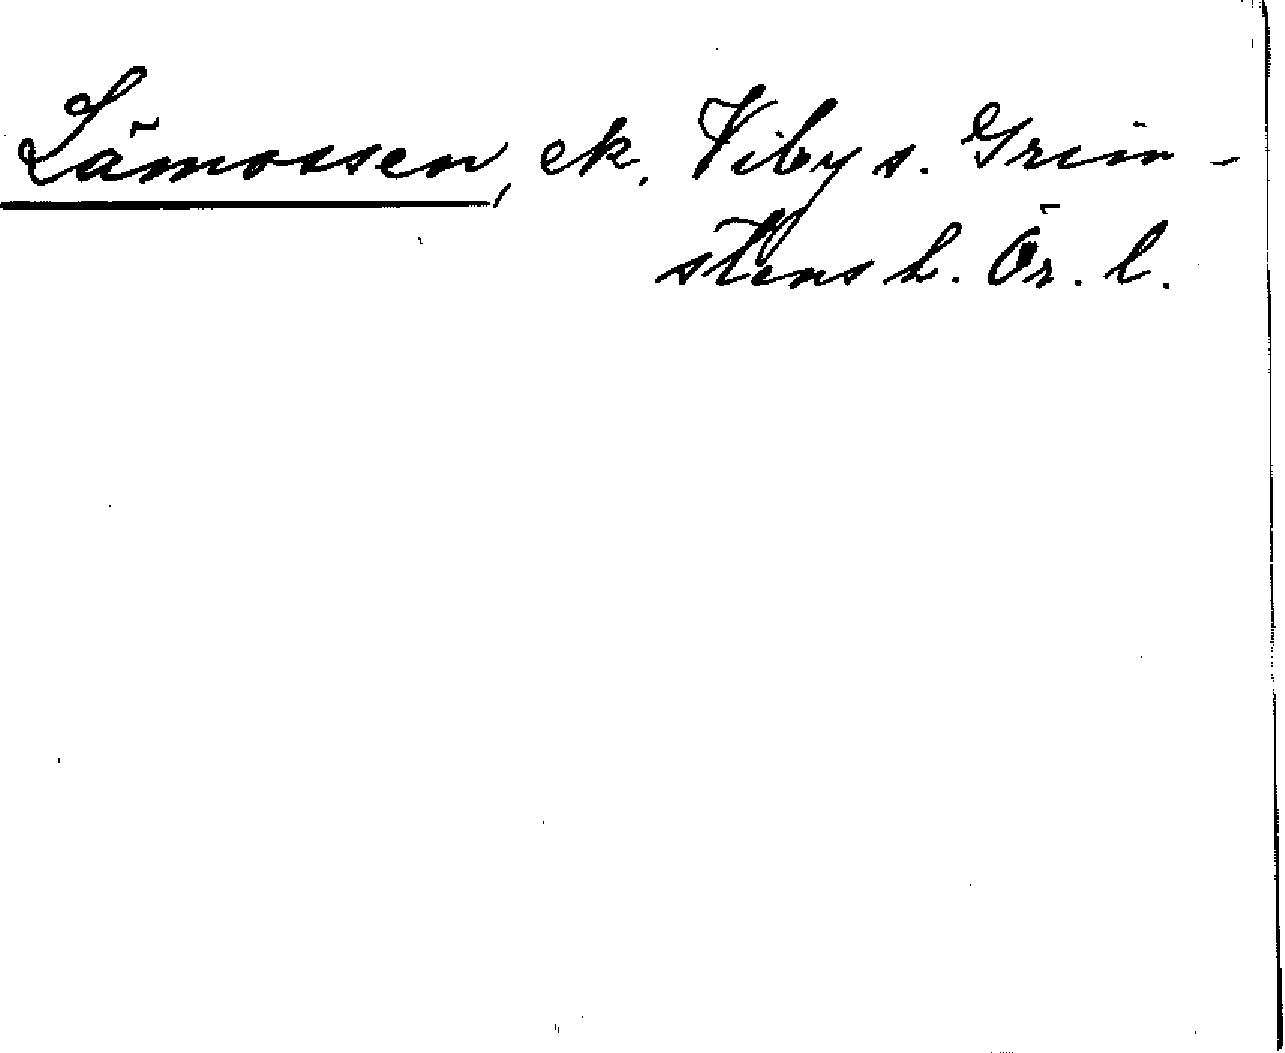 Lämossen, ek. Viby s. Grim-
stens h. Ör. l.